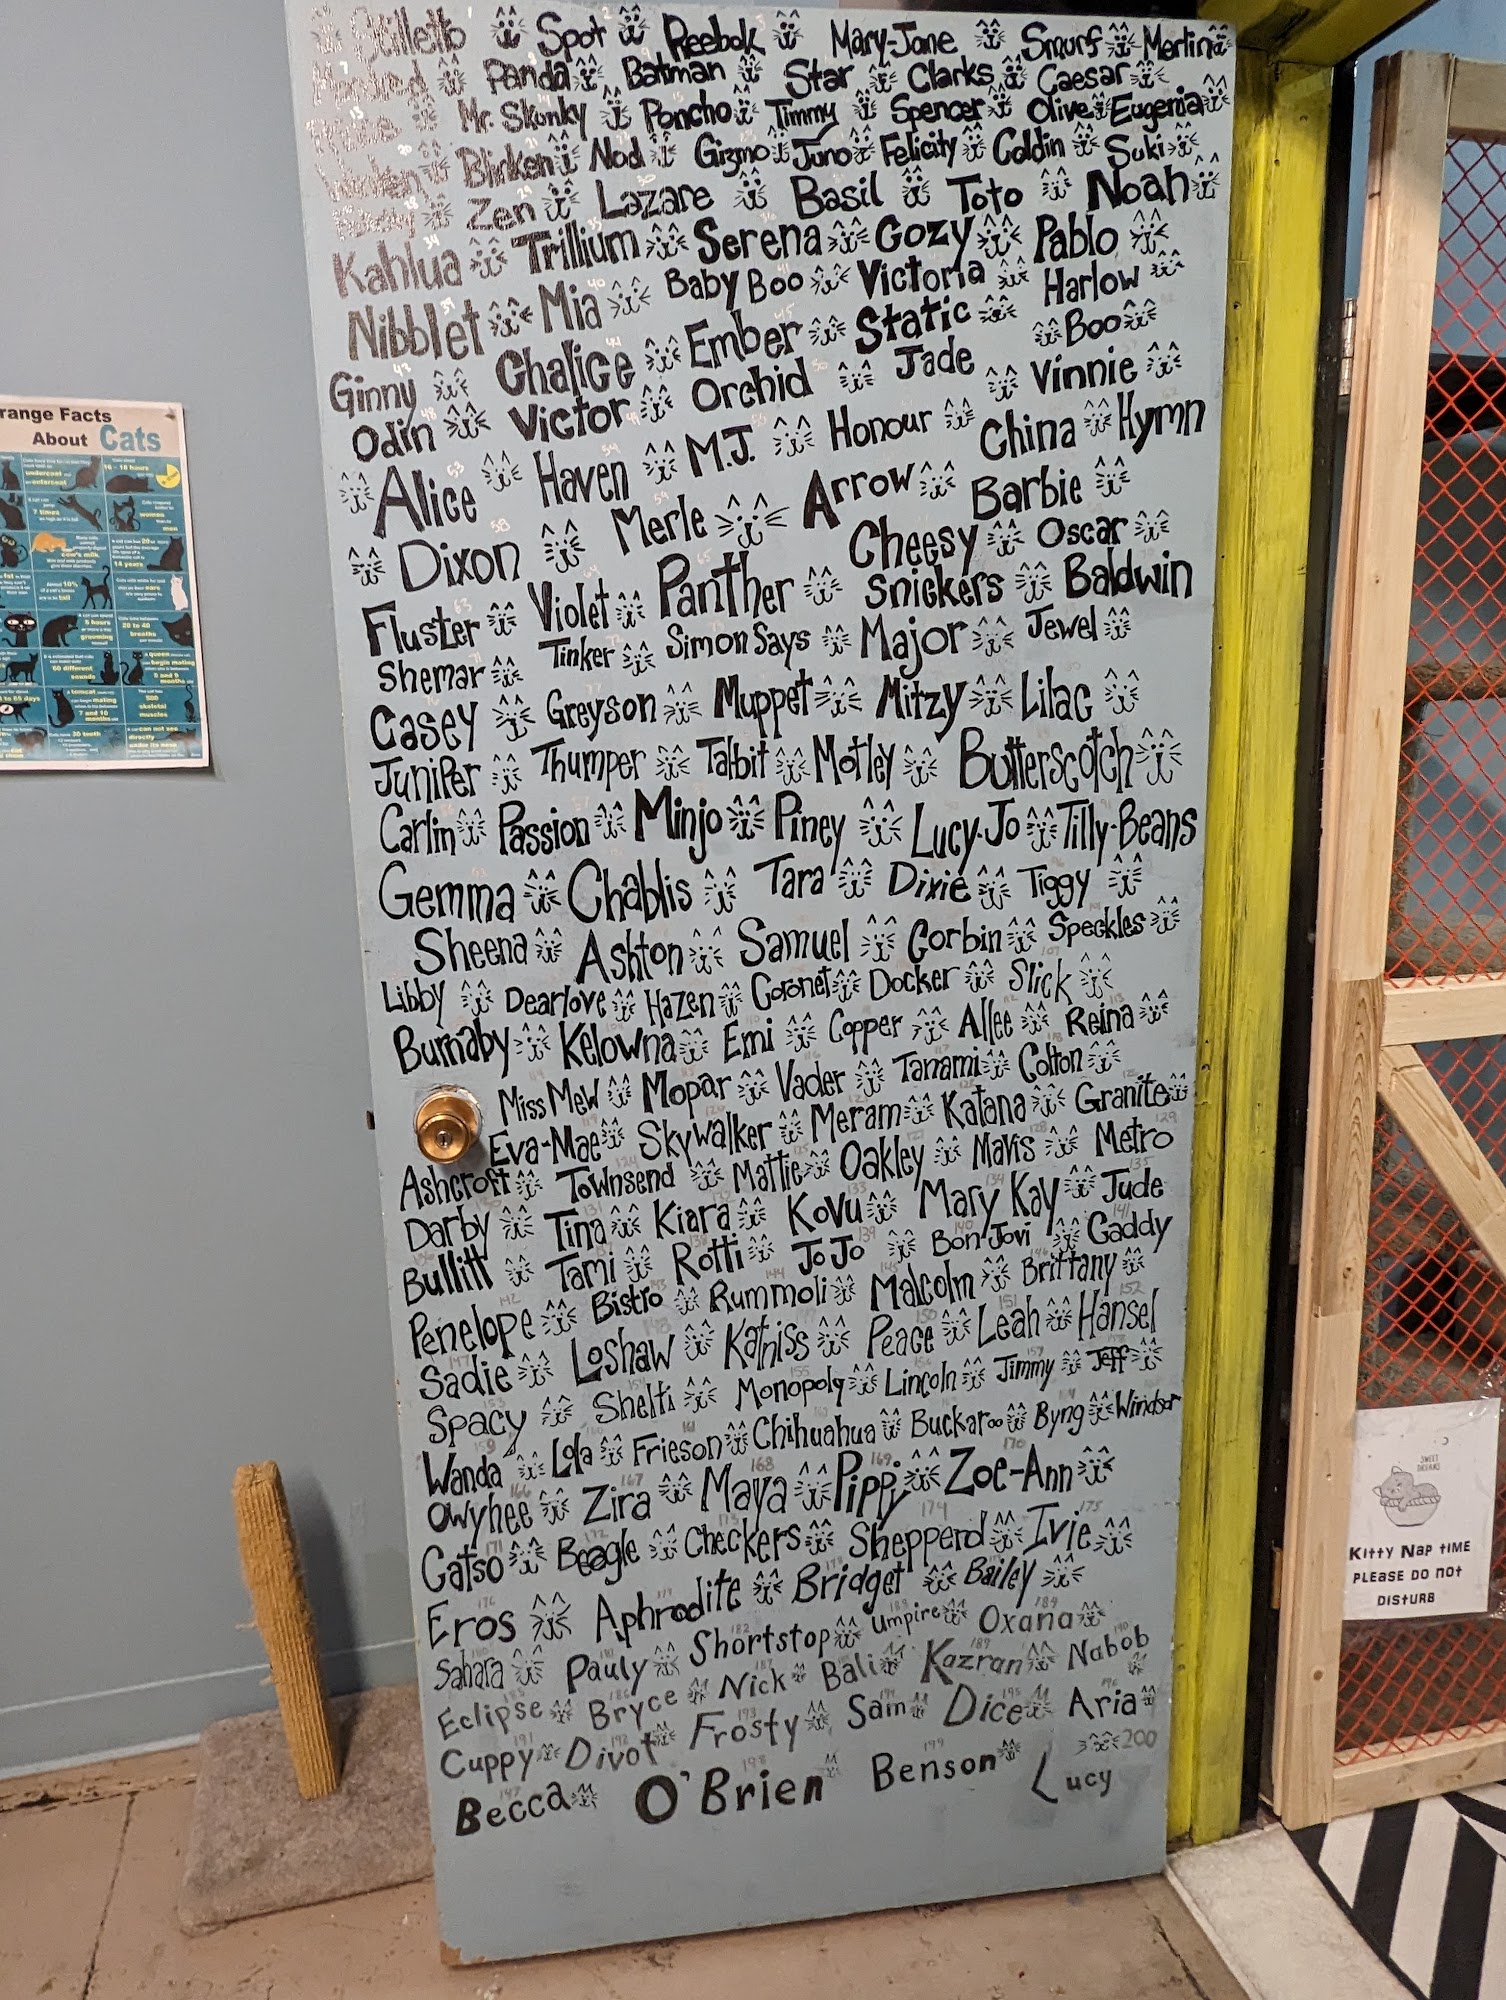 Stiletto Spot Reebok Mary-Jane Smurf Merlin
Panda Batman Star Clarks Caesar
Mr. Skunky Poncho Timmy Spencer Olive Eugenia
Blinken Nod Gizmo Juno Felicity Coldin Suki
Zen Lazare Basil Toto Noah
Kahlua Trillium Serena Cozy Pablo
Nibblet Mia Baby Boo Victoria Harlow
Ginny Chalice Ember Static Boo
Odin Victor Orchid Jade Vinnie
Alice Haven M.J. Honour China Hymn
Dixon Merle Arrow Barbie
Cheesy Oscar
Fluster Violet Panther Snickers Baldwin
Shemar Tinker Simon Says Major Jewel
Casey Greyson Muppet Mitzy Lilac
Juniper Thumper Talbit Motley Butterscotch
Carlin Passion Minjo Piney Lucy-Jo Tilly-Beans
Gemma Chablis Tara Dixie Tiggy
Sheena Ashton Samuel Corbin Speckles
Libby Dearlove Hazen Coronet Docker Slick
Burnaby Kelowna Emi Copper Allee Reina
Miss Mew Mopar Vader Tanami Colton
Eva-Mae Skywalker Meram Katana Granite
Ashcroft Townsend Mattie Oakley Mavis Metro
Darby Tina Kiara Kovu Mary Kay Jude
Bullitt Tami Rotti JoJo Bon Jovi Caddy
Penelope Bistro Rummoli Malcolm Brittany
Sadie Loshaw Katniss Peace Leah Hansel
Spacy Shelti Monopoly Lincoln Jimmy Jeff
Wanda Lola Frieson Chihuahua Buckaroo Byng Windsor
Owyhee Zira Maya Pippi Zoe-Ann
Catso Beagle Checkers Shepperd Ivie
Eros Aphrodite Bridget Bailey
Sahara Pauly Shortstop Umpire Oxana
Eclipse Bryce Nick Bali Kazran Nabob
Cuppy Divot Frosty Sam Dice Aria
Becca O'Brien Benson Lucy
200
range Facts
About Cats
SWEET
DREAMS
Kitty Nap time
Please do not
disturb